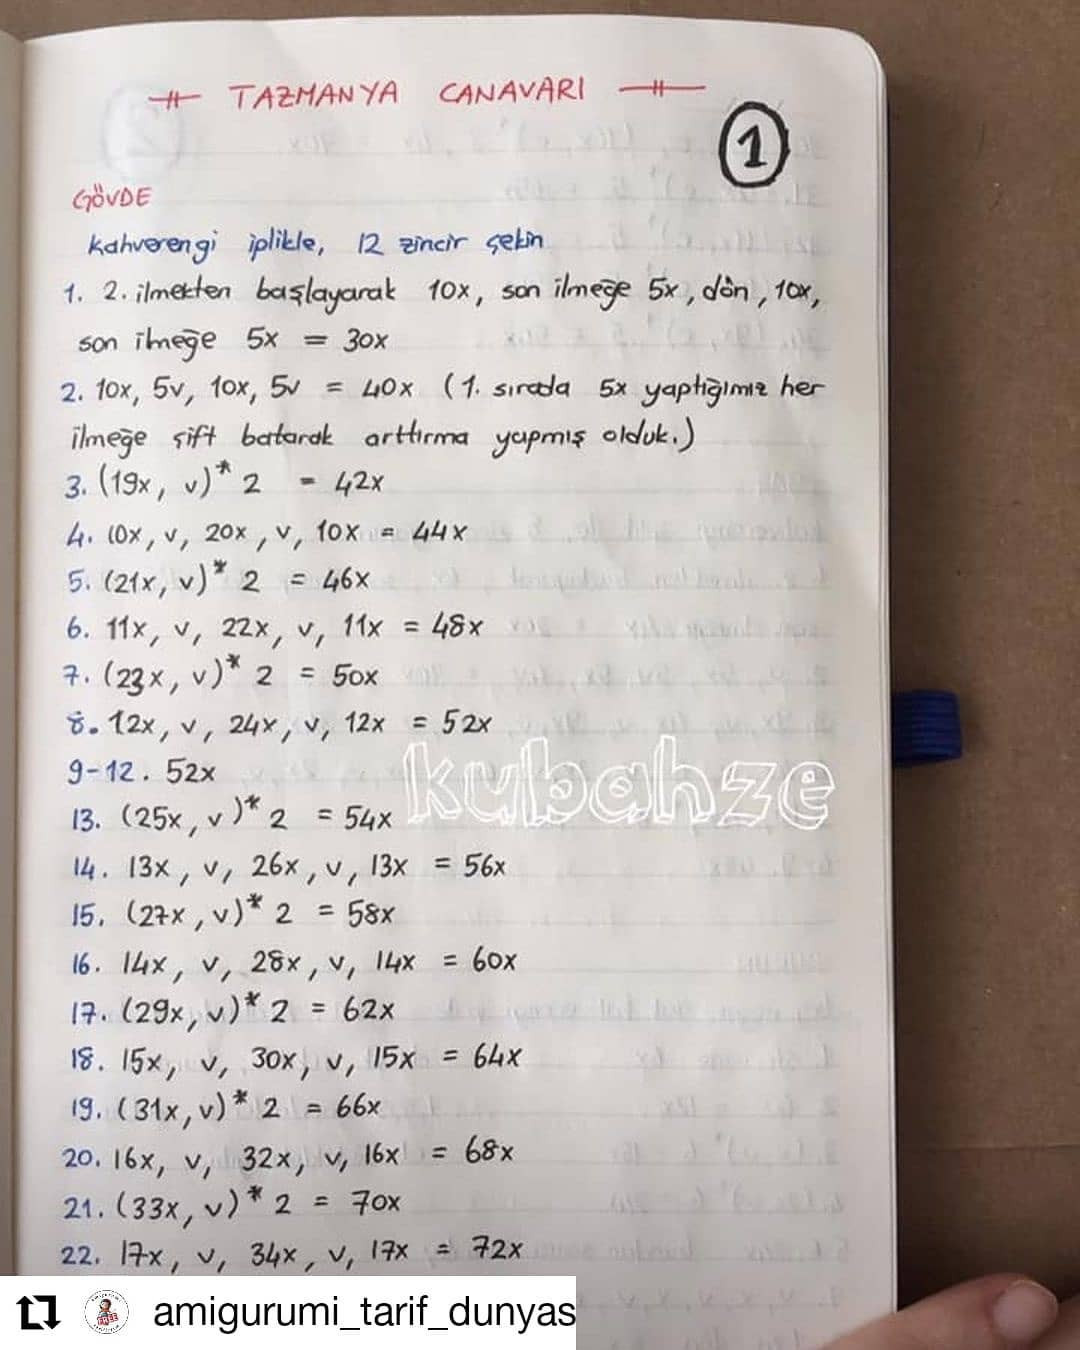 TAZMANYA CANAVARI
1
GÖVDE
Kahverengi iplikle, 12 zincir çekin
1. 2. ilmekten başlayarak 10x, son ilmeğe 5x, dön, 10x,
son ilmeğe 5x = 30x
2. 10x, 5v, 10x, 5v = 40x (1. sırada 5x yaptığımız her
ilmeğe çift batarak arttırma yapmış olduk.)
3. (19x, v)* 2 = 42x
4. 10x, v, 20x, v, 10x = 44x
5. (21x, v)* 2 = 46x
6. 11x, v, 22x, v, 11x = 48x
7. (23x, v)* 2 = 50x
8. 12x, v, 24x, v, 12x = 52x
9-12. 52x
kubahze
13. (25x, v)* 2 = 54x
14. 13x, v, 26x, v, 13x = 56x
15. (27x, v)* 2 = 58x
16. 14x, v, 28x, v, 14x = 60x
17. (29x, v)* 2 = 62x
18. 15x, v, 30x, v, 15x = 64x
19. (31x, v)* 2 = 66x
20. 16x, v, 32x, v, 16x = 68x
21. (33x, v)* 2 = 70x
22. 17x, v, 34x, v, 17x = 72x
amigurumi_tarif_dunyas